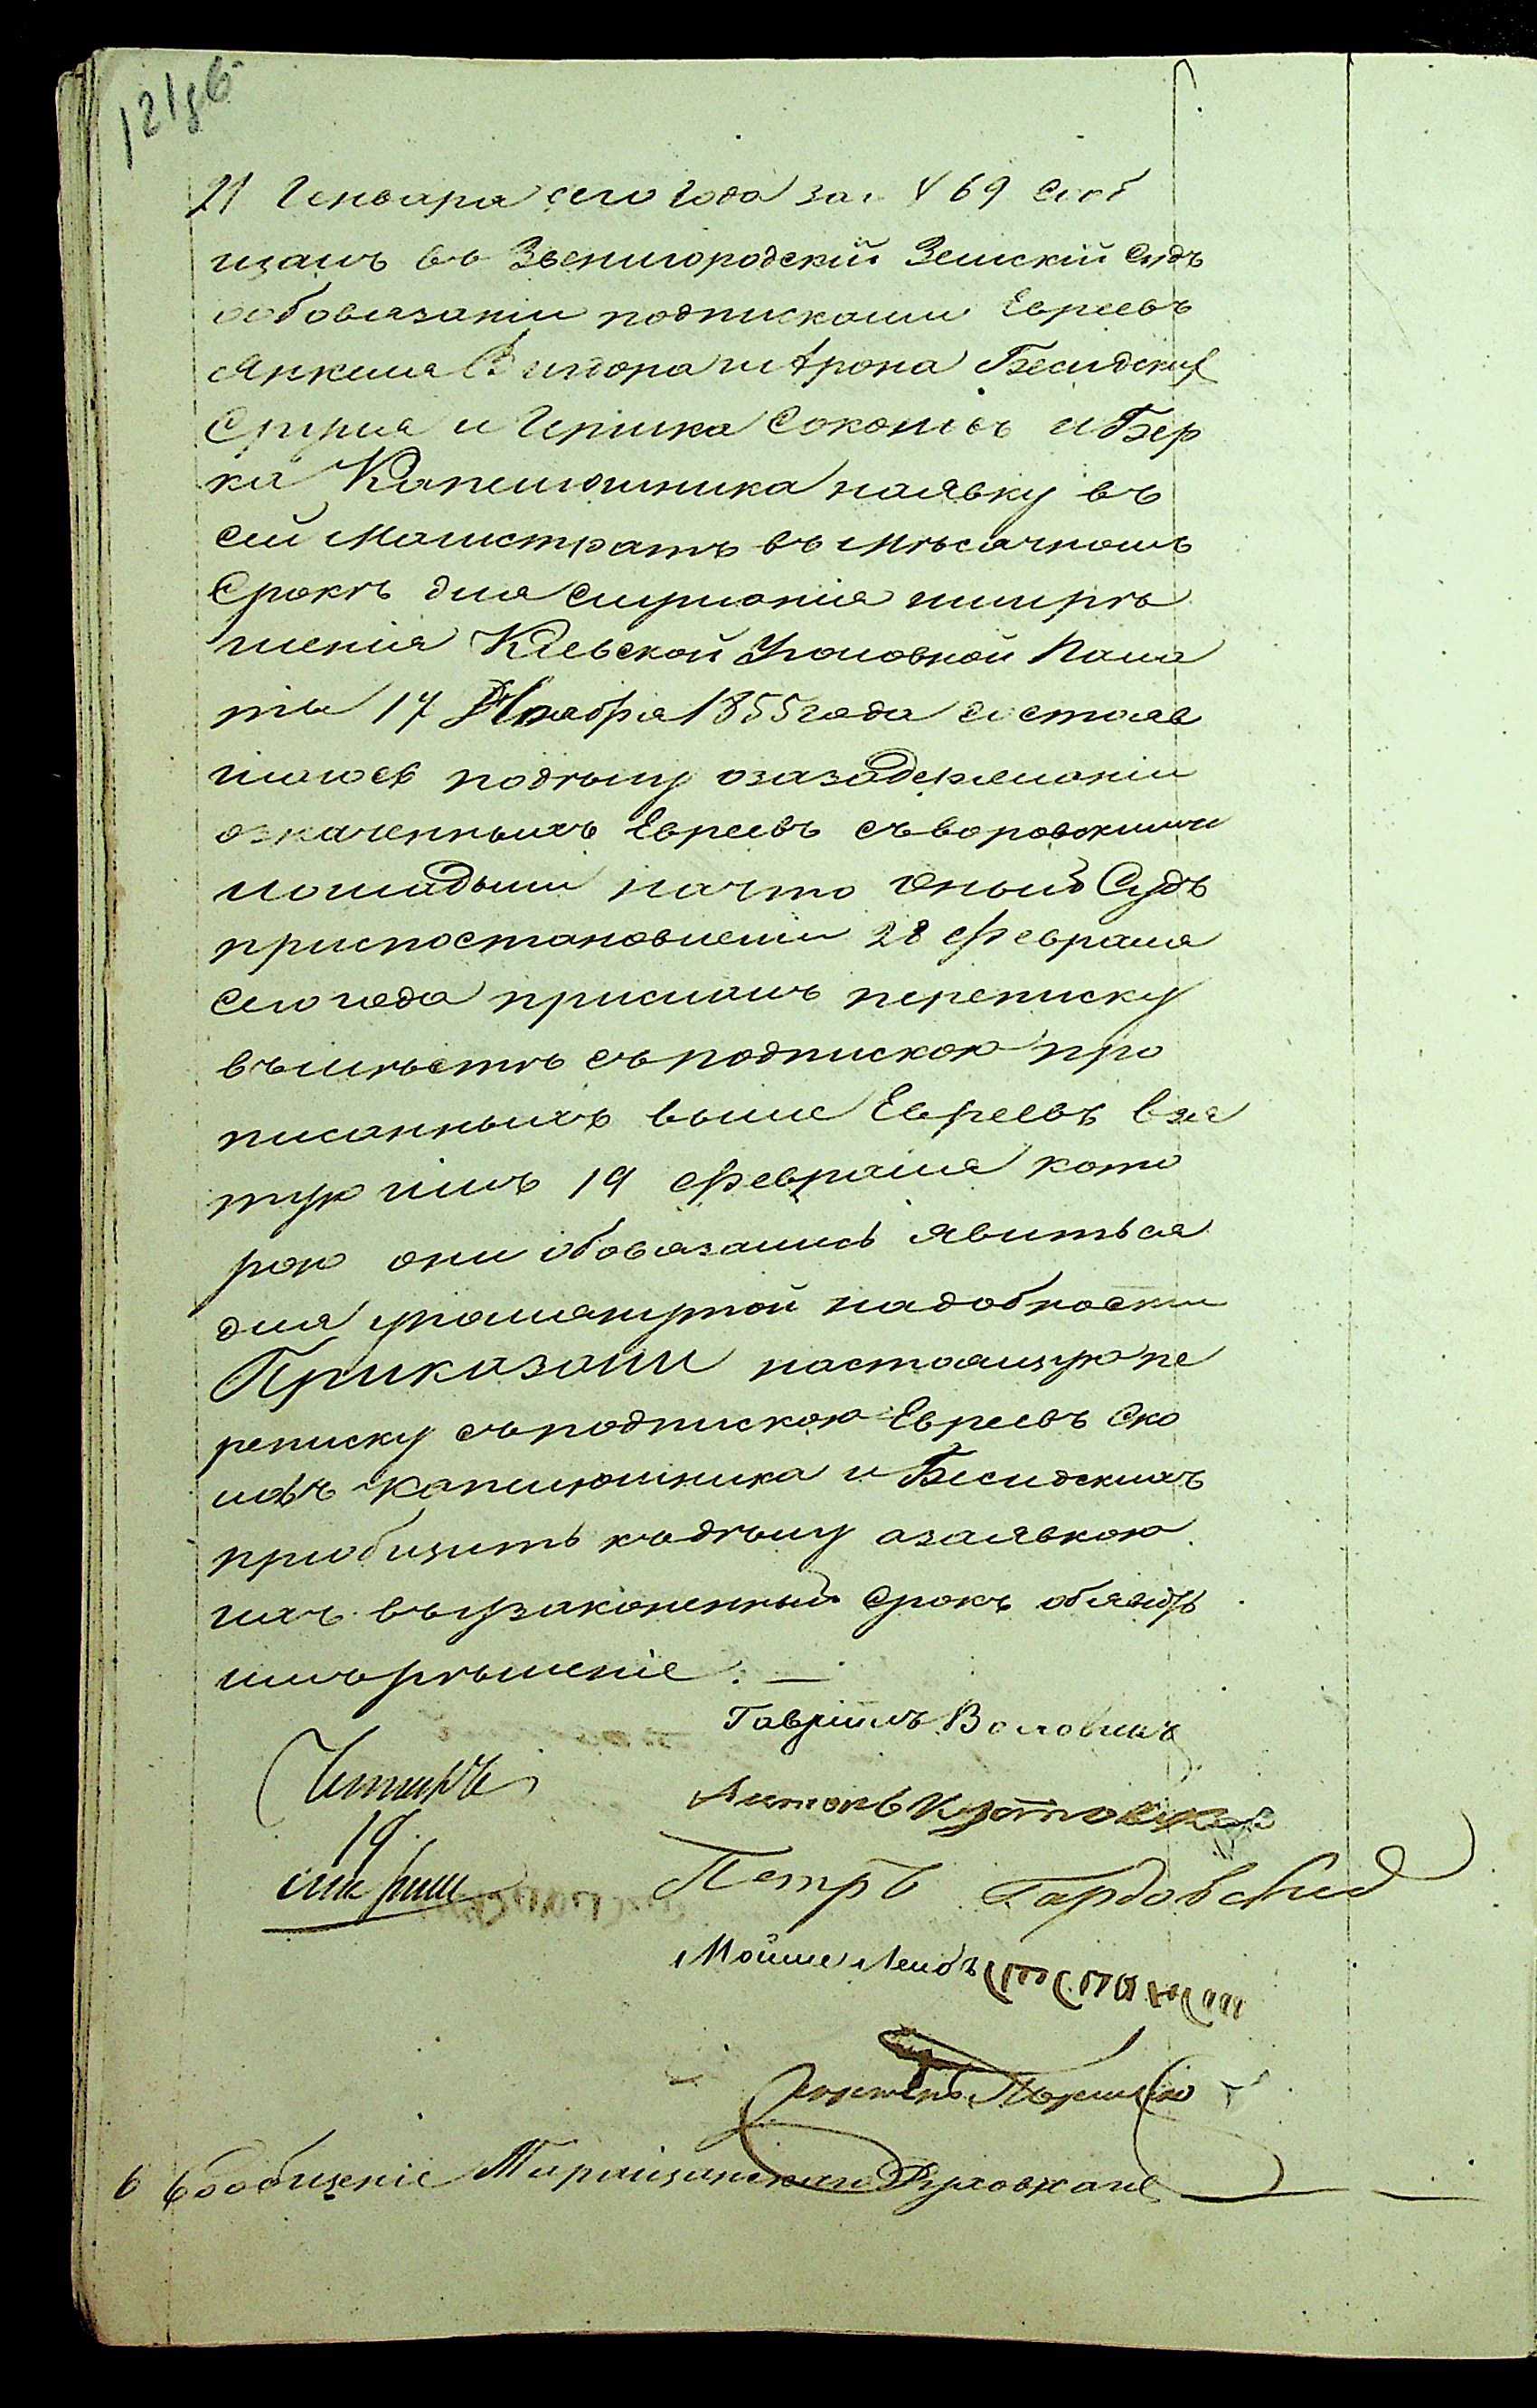 21 Генваря сего года за № 469 сооб
щалъ въ Звенигородскій Земскій Судъ
обовязаніи подписками Евреевъ
Янкеля Сиидора и Арона Бесидских
Сруля и Гершка Соколовъ и Бер
ка Капелюшника наявку въ
сей Магистратъ въ мѣсячномъ
Срокѣ для слушанія имирѣ
шенія Кіевской Уголовной Пала
ты 17 Ноября 1855 года состояв
шагося подѣлу озазадержаніи
означенныхъ Евреевъ съворовскими
лошадьми начто оный Судъ
припостановленіи 28 февраля
сего года прислалъ переписку
вѣмѣстѣ съподпискою про
писанныхъ выше Евреевъ взя
тую имъ 19 февраля кото
рою они обовязались явиться
для упомянутой надобности
Приказали настоящую пе
реписку съподпискою Евреевъ Соко
ловъ Капелюшника и Бесидскихъ
пріобщить къдѣлу азаявкою
ихъ въузаконенный срокъ обявить
имърѣшеніе. —
Гавріилъ Воловикъ
Читалъ
19
Антонъ
Петръ Гардовский
Мойше Лейбъ
6 Сообщеніе Таращанскаго Духовнаго